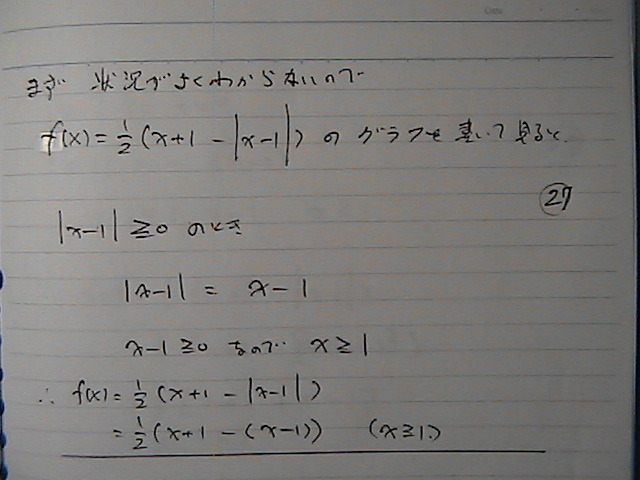 まず 状況がよくわからないので
f(x) = 1/2 (x+1 - |x-1|) の グラフを 書いて 見ると、
㉗
|x-1| ≧0 のとき
|x-1| = x-1
x-1 ≧0 なので x≧1
∴ f(x) = 1/2 (x+1 - |x-1|)
= 1/2 (x+1 - (x-1)) (x≧1.)